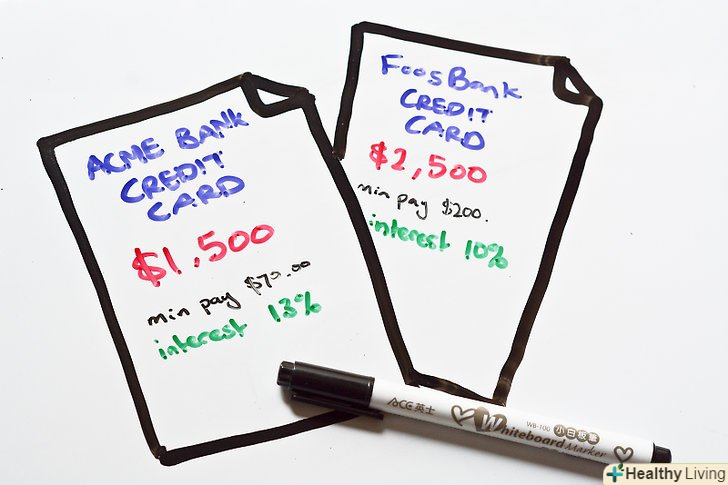 ACME BANK
CREDIT
CARD
$1,500
min pay $70.00
interest 13%
FoosBank
CREDIT
CARD
$2,500
min pay $200.
interest 10%
ACE英士
Whiteboard Marker
WB-100 小白板筆
Healthy Living